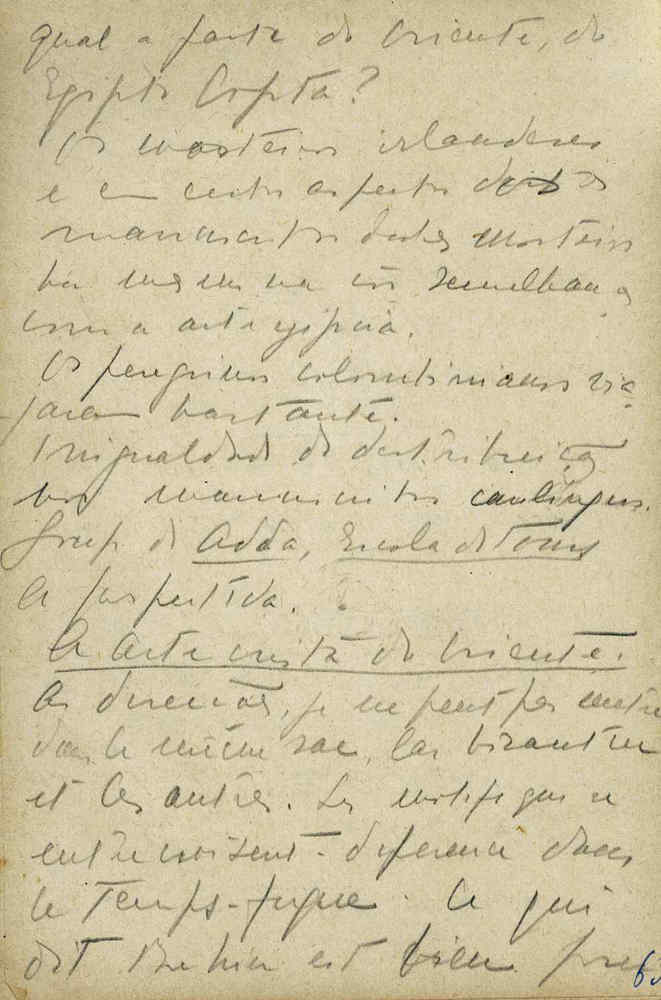 qual a parte do Oriente, do
Egipto Copta?
Os mosteiros irlandeses
e em certos aspectos
manuscritos destes mosteiros
semelhança
com a arte egipcia.
Os peregrinos colombinianos via
jaram bastante.
Inigualdade de distribuição
nos manuscritos carolingios.
Grupo de Adda, Escola de Tours
A perspectiva.
A Arte cristã do Oriente.
As direcções, je ne peut pas mettre
dans le même sac, les bizantins
et les autres. Les motifs qui se
entrecroisent - diference dans
le temps - fugue. Ce qui
dit Bréhier est bien